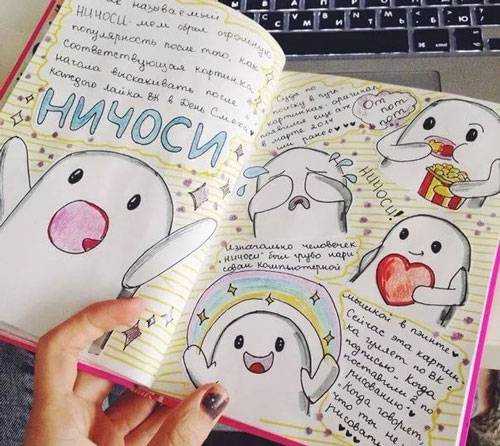 как называемый
НИЧОСИ- мем обрёл огромную
популярность после того, как
соответствующая картинка
начала выскакивать после
каждого лайка ВК в День Смеха
НИЧОСИ
Судя по
картинка-оригинал
появился ещё аж
в марте 2014
Ом
ном
ном
НИЧОСИ!
Изначально человечек
"ничоси" был грубо нари
сован компьютерной
мышкой в пэинте
Сейчас эта картин
ка гуляет по ВК с
подписью "когда
поставили 2 по
рисованию"
"Когда говорят
что ты
рисова